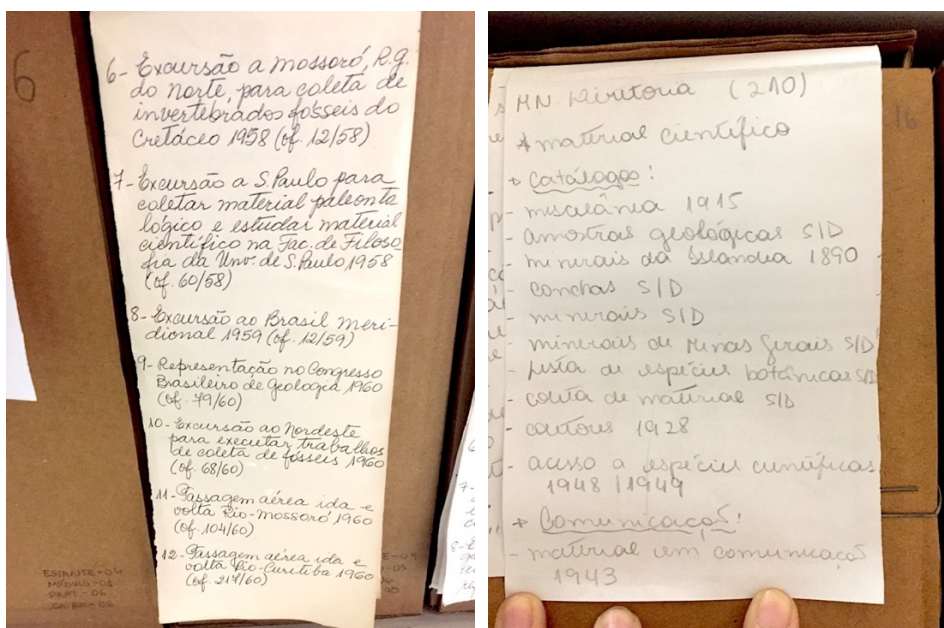 6
6- Excursão a Mossoró, R.G.
do Norte, para coleta de
invertebrados fósseis do
Cretáceo 1958 (of. 12/58)
7- Excursão a S. Paulo para
coletar material paleonto
lógico e estudar material
científico na Fac. de Filoso
fia da Unv. de S. Paulo, 1958
(of. 60/58)
8- Excursão ao Brasil Meri-
dional 1959 (of. 12/59)
9- Representação no Congresso
Brasileiro de Geologia 1960
(of. 79/60)
10- Excursão ao Nordeste
para executar trabalhos
de coleta de fósseis 1960
(of. 68/60)
11- Passagem aérea ida e
volta Rio-Mossoró 1960
(of. 104/60)
12- Passagem aérea ida e
volta Rio-Curitiba 1960
(of. 217/60)
ESTANTE-04
MÓDULO-01
PRAT-06
16
MN. Diretoria (210)
* material científico
→ Catálogos:
- miscelânea 1915
- amostras geológicas S/D
- minerais da Islândia 1890
- conchas S/D
- minerais S/D
- minerais de Minas Gerais S/D
- lista de espécies botânicas S/D
- coleta de material S/D
- coletores 1928
- acesso a espécies científicas
1948/1949
→ Comunicação:
- material em comunicação
1943